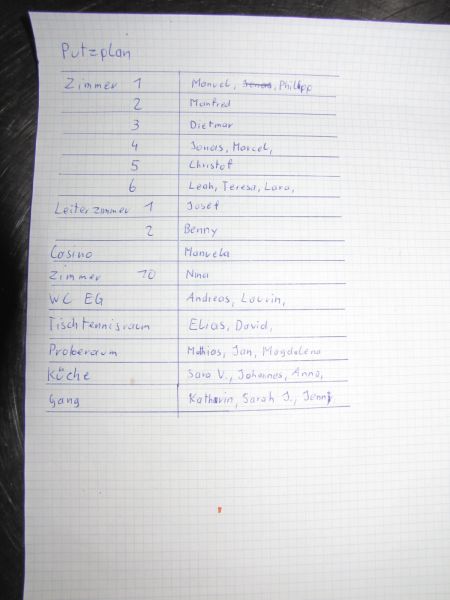 Putzplan
Zimmer 1 Manuel, Jonas, Philipp
2 Manfred
3 Dietmar
4 Jonas, Marcel,
5 Christof
6 Leah, Teresa, Lara,
Leiterzimmer 1 Josef
2 Benny
Casino Manuela
Zimmer 10 Nina
WC EG Andreas, Laurin,
Tischtennisraum Elias, David,
Proberaum Mathias, Jan, Magdalena
Küche Sara V., Johannes, Anna,
Gang Katharin, Sarah J., Jenni